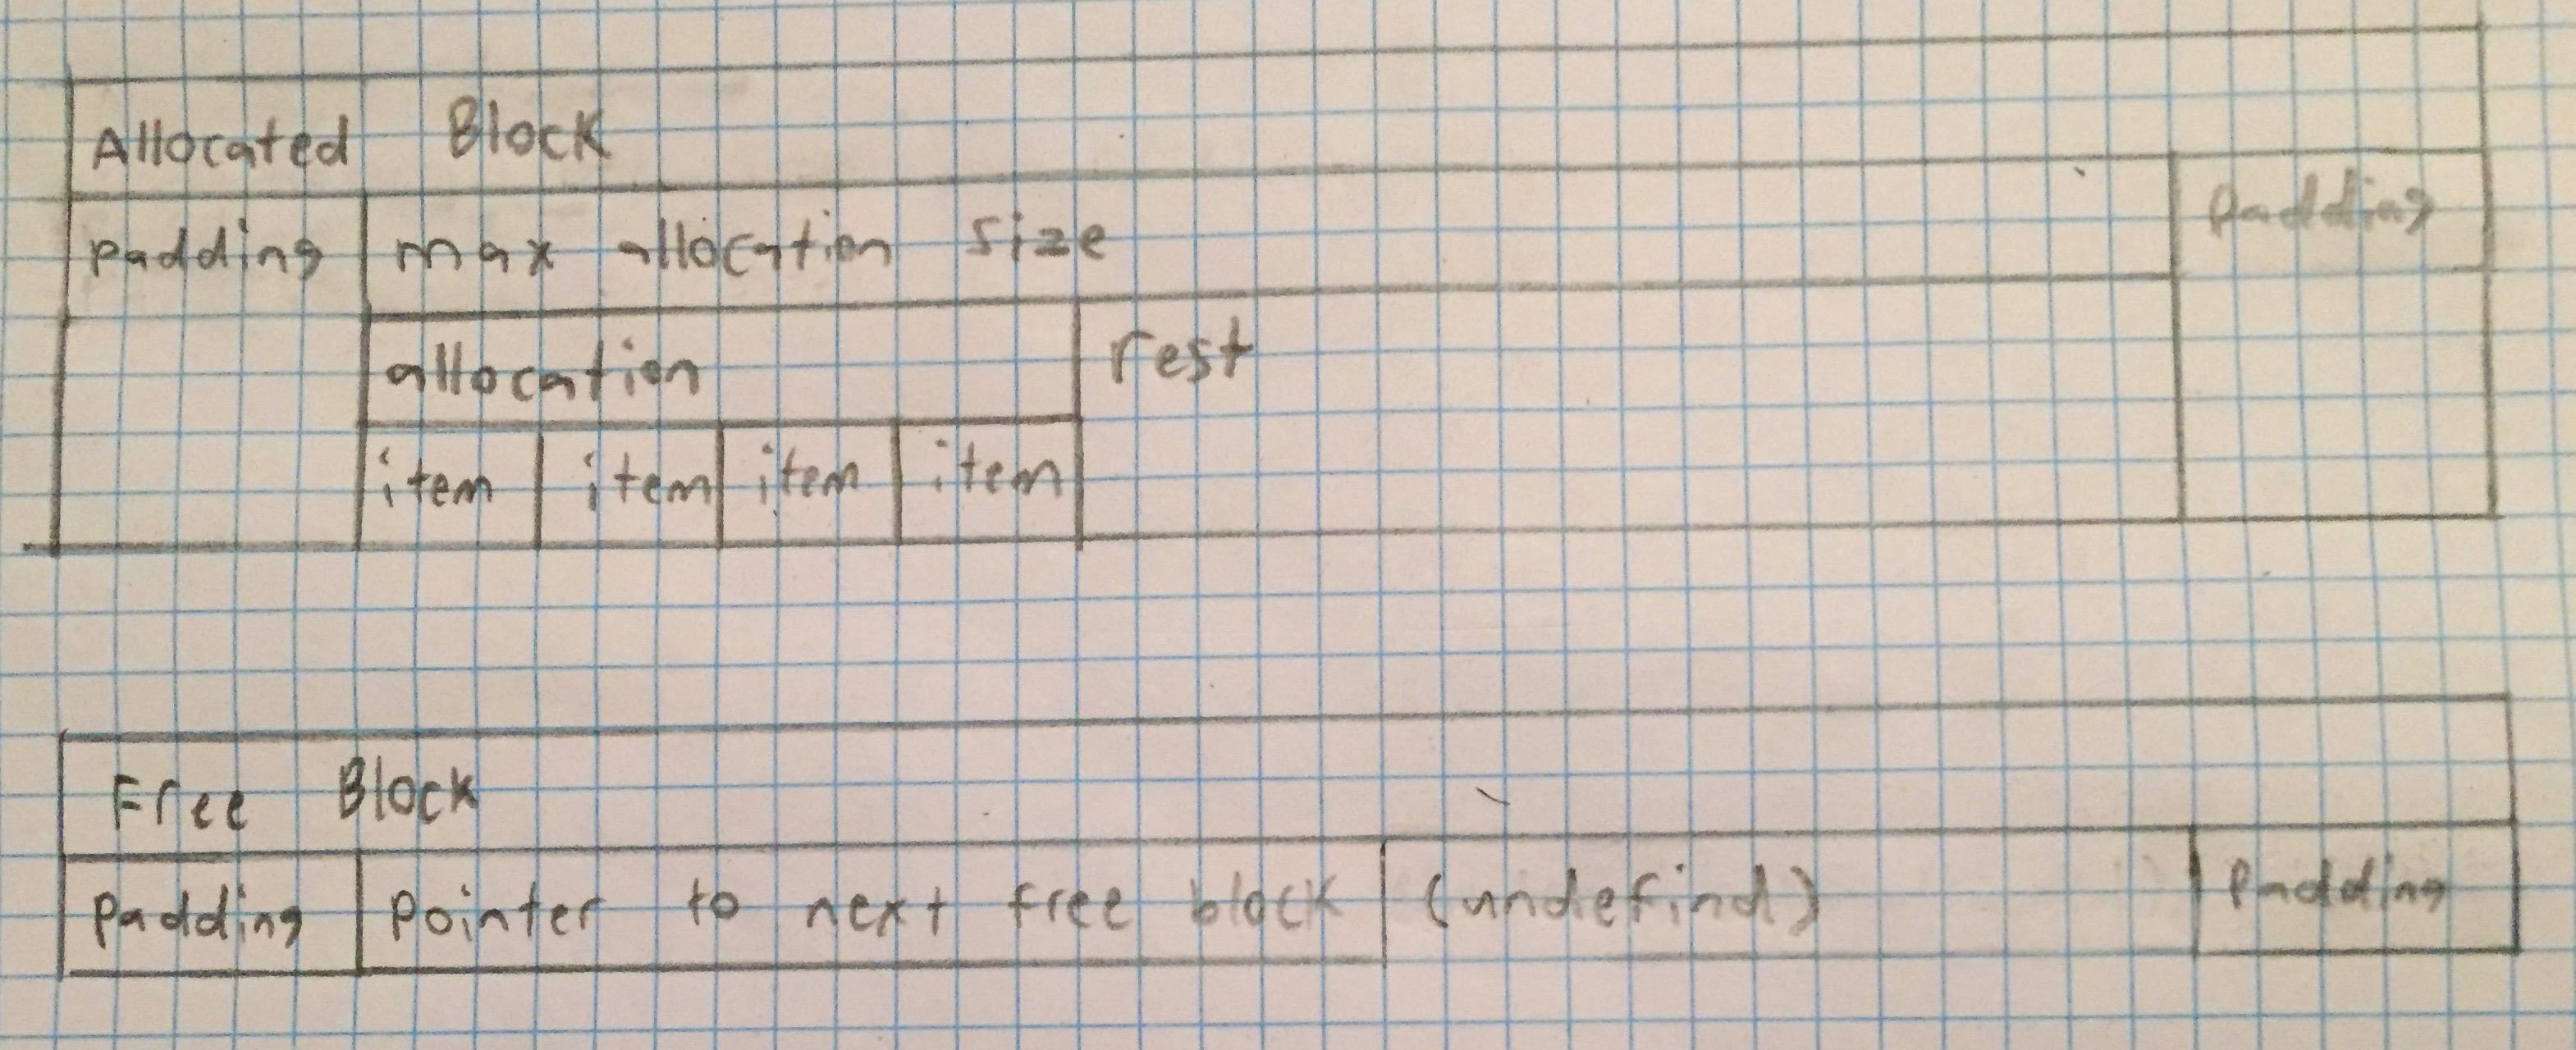 Allocated Block
padding max allocation size padding
allocation rest
item item item item
Free Block
Padding Pointer to next free block (undefind) Padding